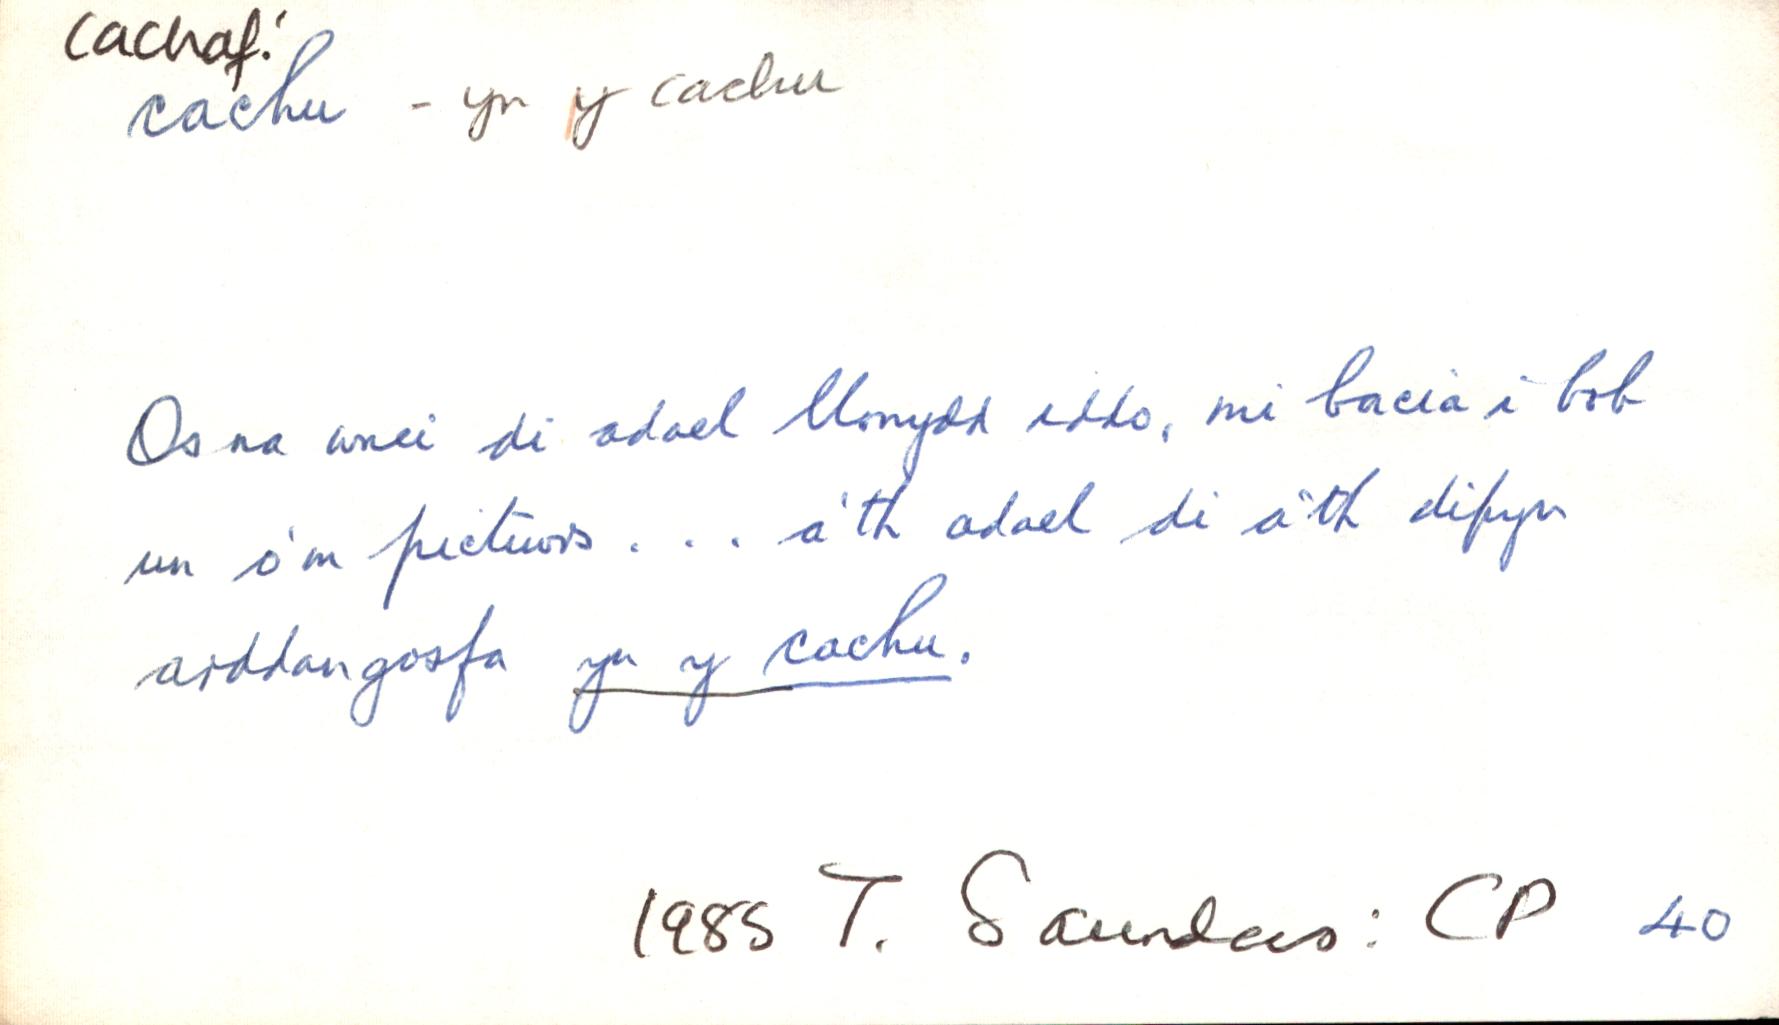 cachaf:
cachu - yn y cachu
Os na wnei di adael llonydd iddo, mi bacia i bob
un o'm pictiwrs . . . a'th adael di a'th dipyn
arddangosfa yn y cachu.
1985 T. Saunders: CP 40